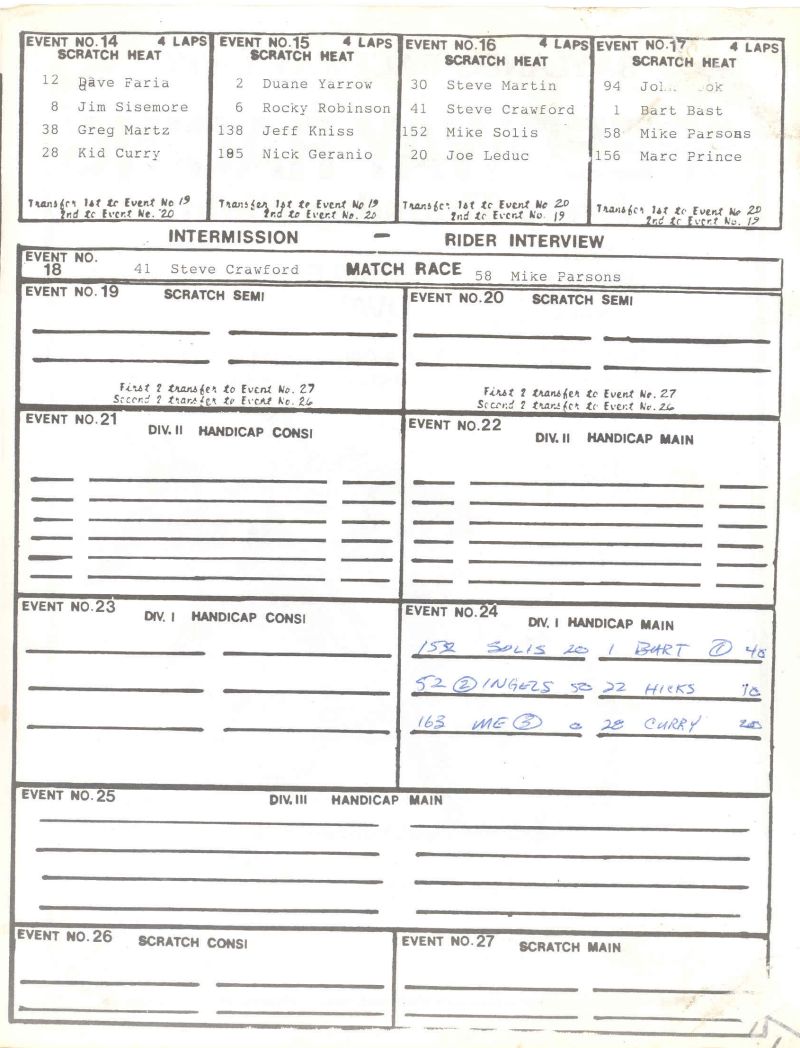 EVENT NO.14 4 LAPS
SCRATCH HEAT
12 Dave Faria
8 Jim Sisemore
38 Greg Martz
28 Kid Curry
Transfer 1st to Event No 19
2nd to Event No. 20
EVENT NO.15 4 LAPS
SCRATCH HEAT
2 Duane Yarrow
6 Rocky Robinson
138 Jeff Kniss
185 Nick Geranio
Transfer 1st to Event No 19
2nd to Event No. 20
EVENT NO.16 4 LAPS
SCRATCH HEAT
30 Steve Martin
41 Steve Crawford
152 Mike Solis
20 Joe Leduc
Transfer 1st to Event No 20
2nd to Event No. 19
EVENT NO.17 4 LAPS
SCRATCH HEAT
94
1 Bart Bast
58 Mike Parsons
156 Marc Prince
Transfer 1st to Event No 20
2nd to Event No. 19
INTERMISSION - RIDER INTERVIEW
EVENT NO.
18 41 Steve Crawford MATCH RACE 58 Mike Parsons
EVENT NO.19 SCRATCH SEMI
First 2 transfer to Event No. 27
Second 2 transfer to Event No. 26
EVENT NO.20 SCRATCH SEMI
First 2 transfer to Event No. 27
Second 2 transfer to Event No. 26
EVENT NO.21
DIV. II HANDICAP CONSI
EVENT NO.22
DIV. II HANDICAP MAIN
EVENT NO.23
DIV. I HANDICAP CONSI
EVENT NO.24
DIV. I HANDICAP MAIN
152 SOLIS 20 1 BART 1 40
52 2 INGELS 50 22 HICKS 10
163 ME 3 0 28 CURRY 20
EVENT NO.25 DIV. III HANDICAP MAIN
EVENT NO.26 SCRATCH CONSI
EVENT NO.27 SCRATCH MAIN